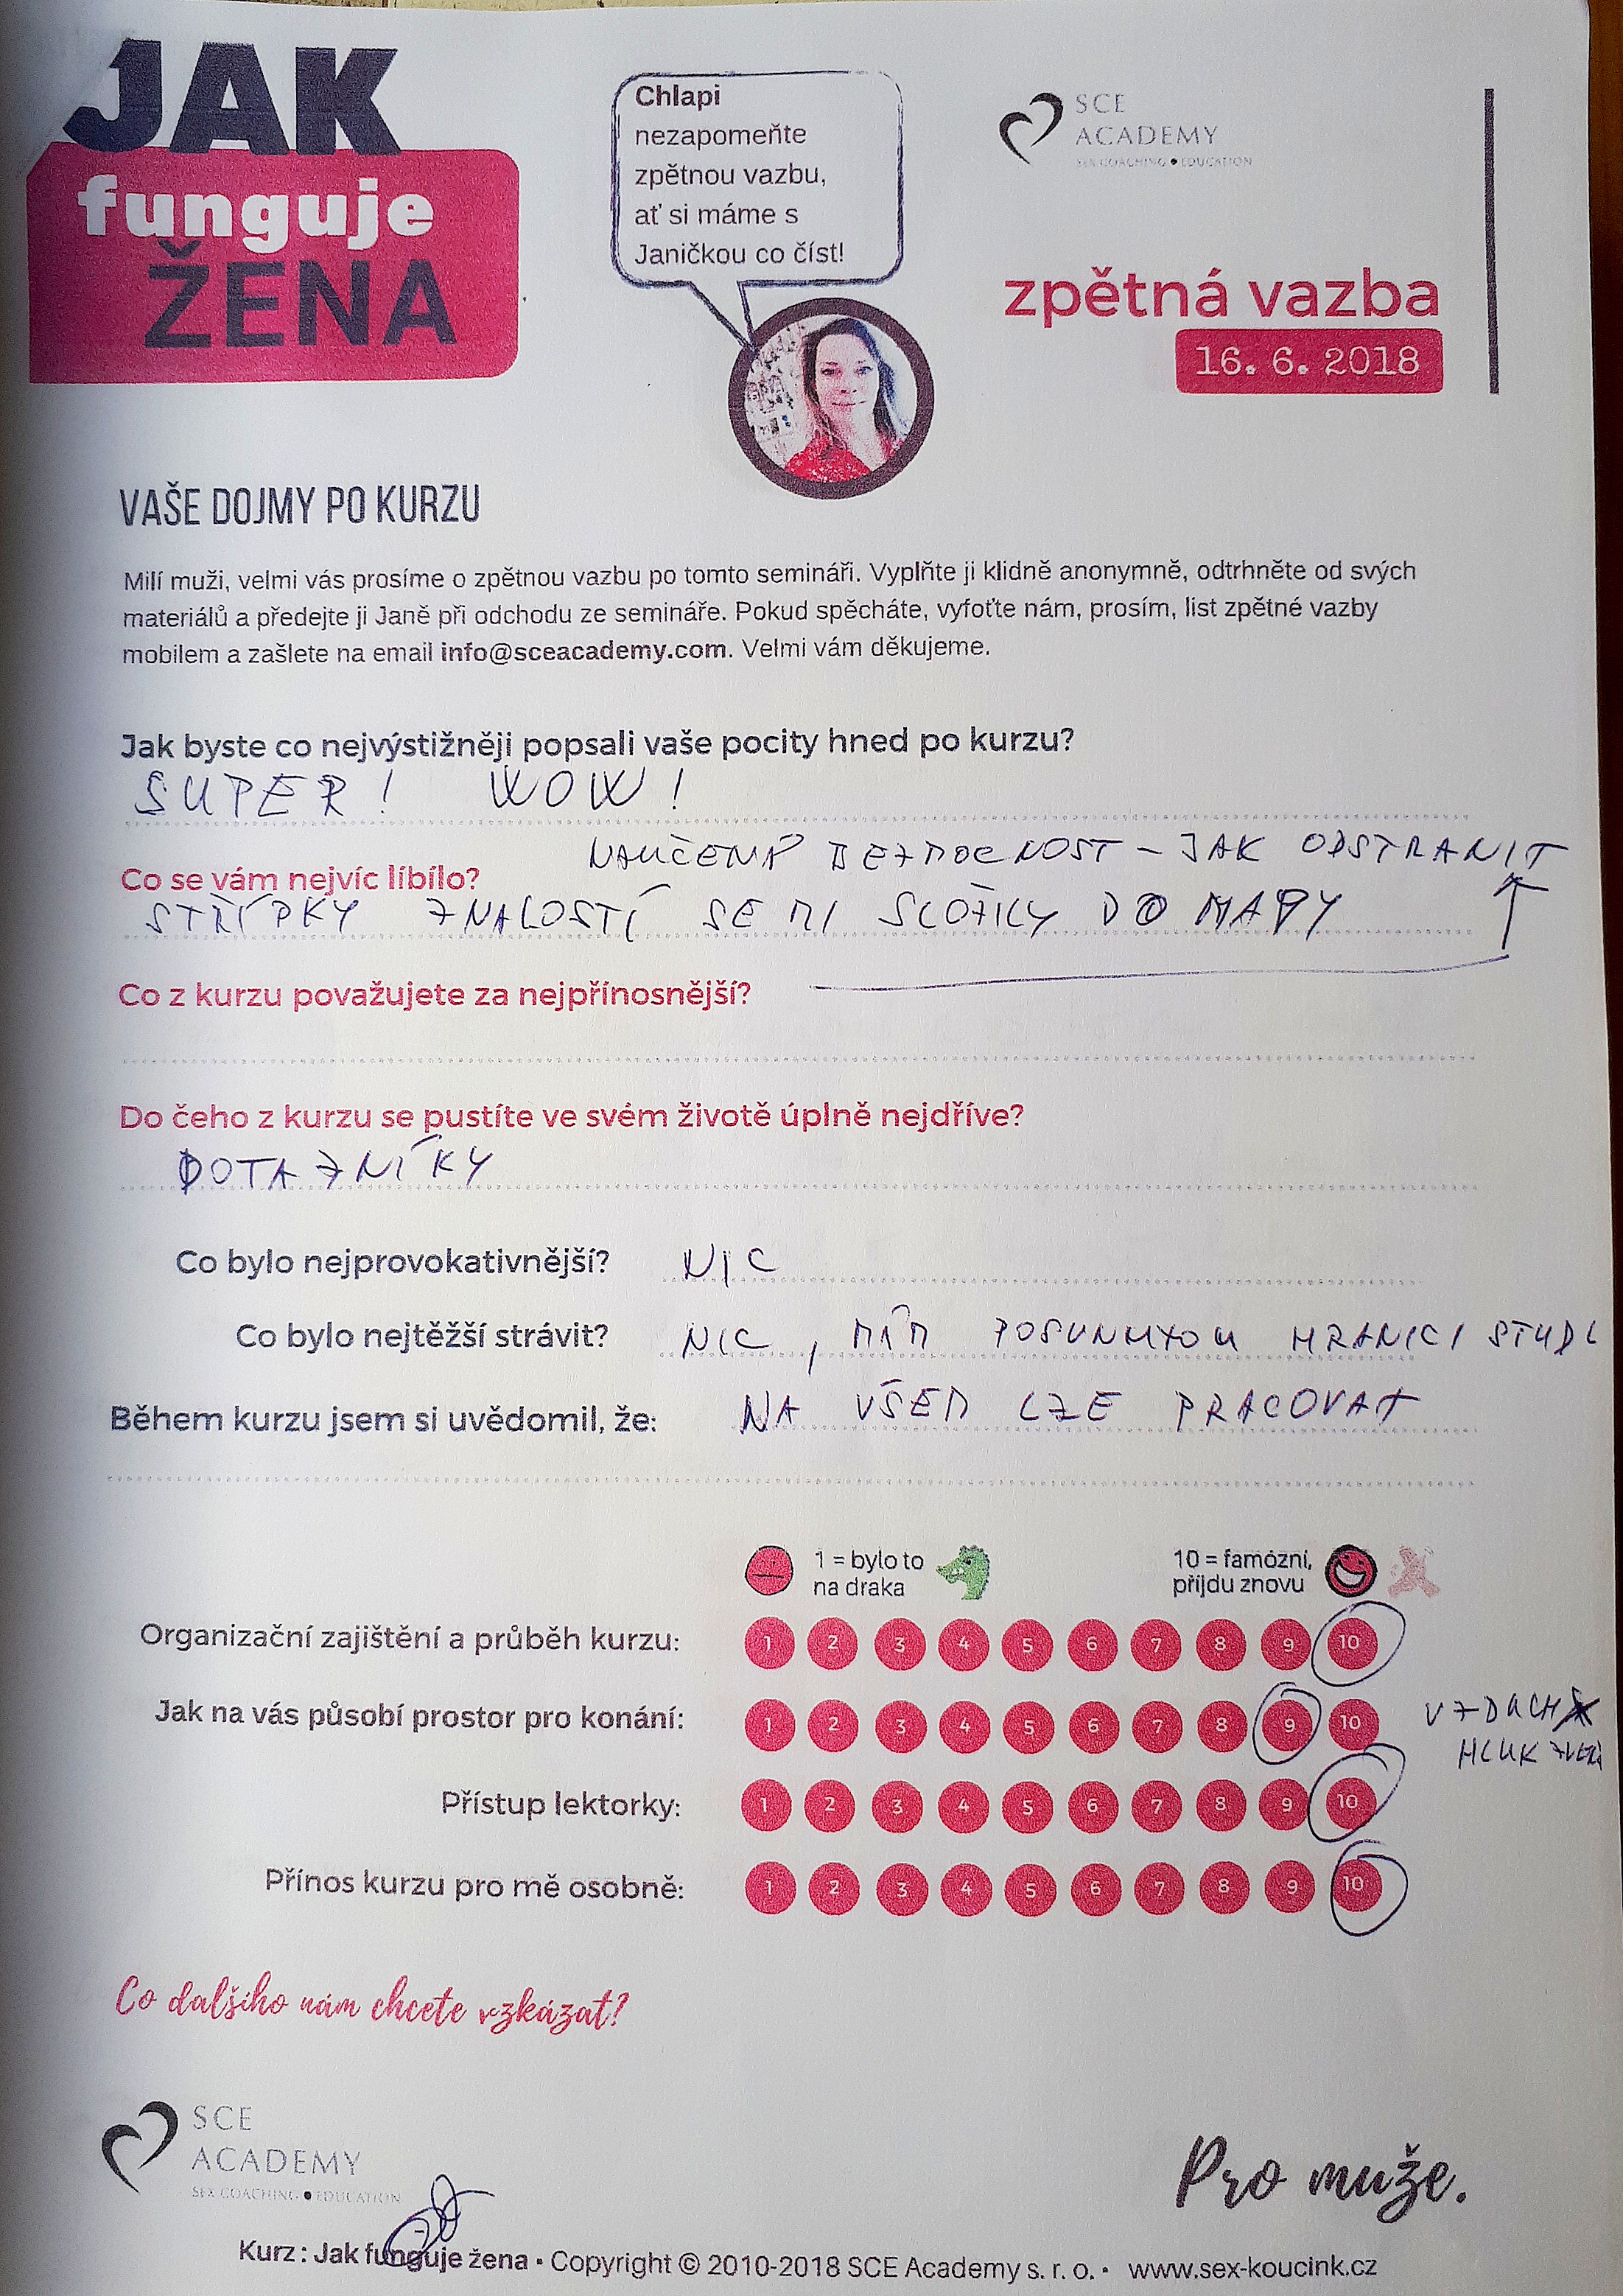 JAK
funguje
ŽENA
Chlapi
nezapomeňte
zpětnou vazbu,
ať si máme s
Janičkou co číst!
SCE
ACADEMY
SEX COACHING ● EDUCATION
zpětná vazba
16. 6. 2018
VAŠE DOJMY PO KURZU
Milí muži, velmi vás prosíme o zpětnou vazbu po tomto semináři. Vyplňte ji klidně anonymně, odtrhněte od svých
materiálů a předejte ji Janě při odchodu ze semináře. Pokud spěcháte, vyfoťte nám, prosím, list zpětné vazby
mobilem a zašlete na email info@sceacademy.com. Velmi vám děkujeme.
Jak byste co nejvýstižněji popsali vaše pocity hned po kurzu?
SUPER! WOW!
NAUČENÁ BEZMOCNOST - JAK ODSTRANIT
Co se vám nejvíc líbílo?
STŘÍPKY ZNALOSTÍ SE MI SLOŽILY DO MAPY
Co z kurzu považujete za nejpřínosnější?
Do čeho z kurzu se pustíte ve svém životě úplně nejdříve?
DOTAZNÍKY
Co bylo nejprovokativnější? NIC
Co bylo nejtěžší strávit? NIC, MÁM POSUNUTOU HRANICI
Během kurzu jsem si uvědomil, že: NA VŠEM LZE PRACOVAT
1 = bylo to
na draka
10 = famózní,
přijdu znovu
Organizační zajištění a průběh kurzu: 1 2 3 4 5 6 7 8 9 10
Jak na vás působí prostor pro konání: 1 2 3 4 5 6 7 8 9 10 VZDUCH
HLUK
Přístup lektorky: 1 2 3 4 5 6 7 8 9 10
Přínos kurzu pro mě osobně: 1 2 3 4 5 6 7 8 9 10
Co dalšího nám chcete vzkázat?
SCE
ACADEMY
SEX COACHING ● EDUCATION
Pro muže.
Kurz: Jak funguje žena • Copyright © 2010-2018 SCE Academy s. r. o. • www.sex-koucink.cz